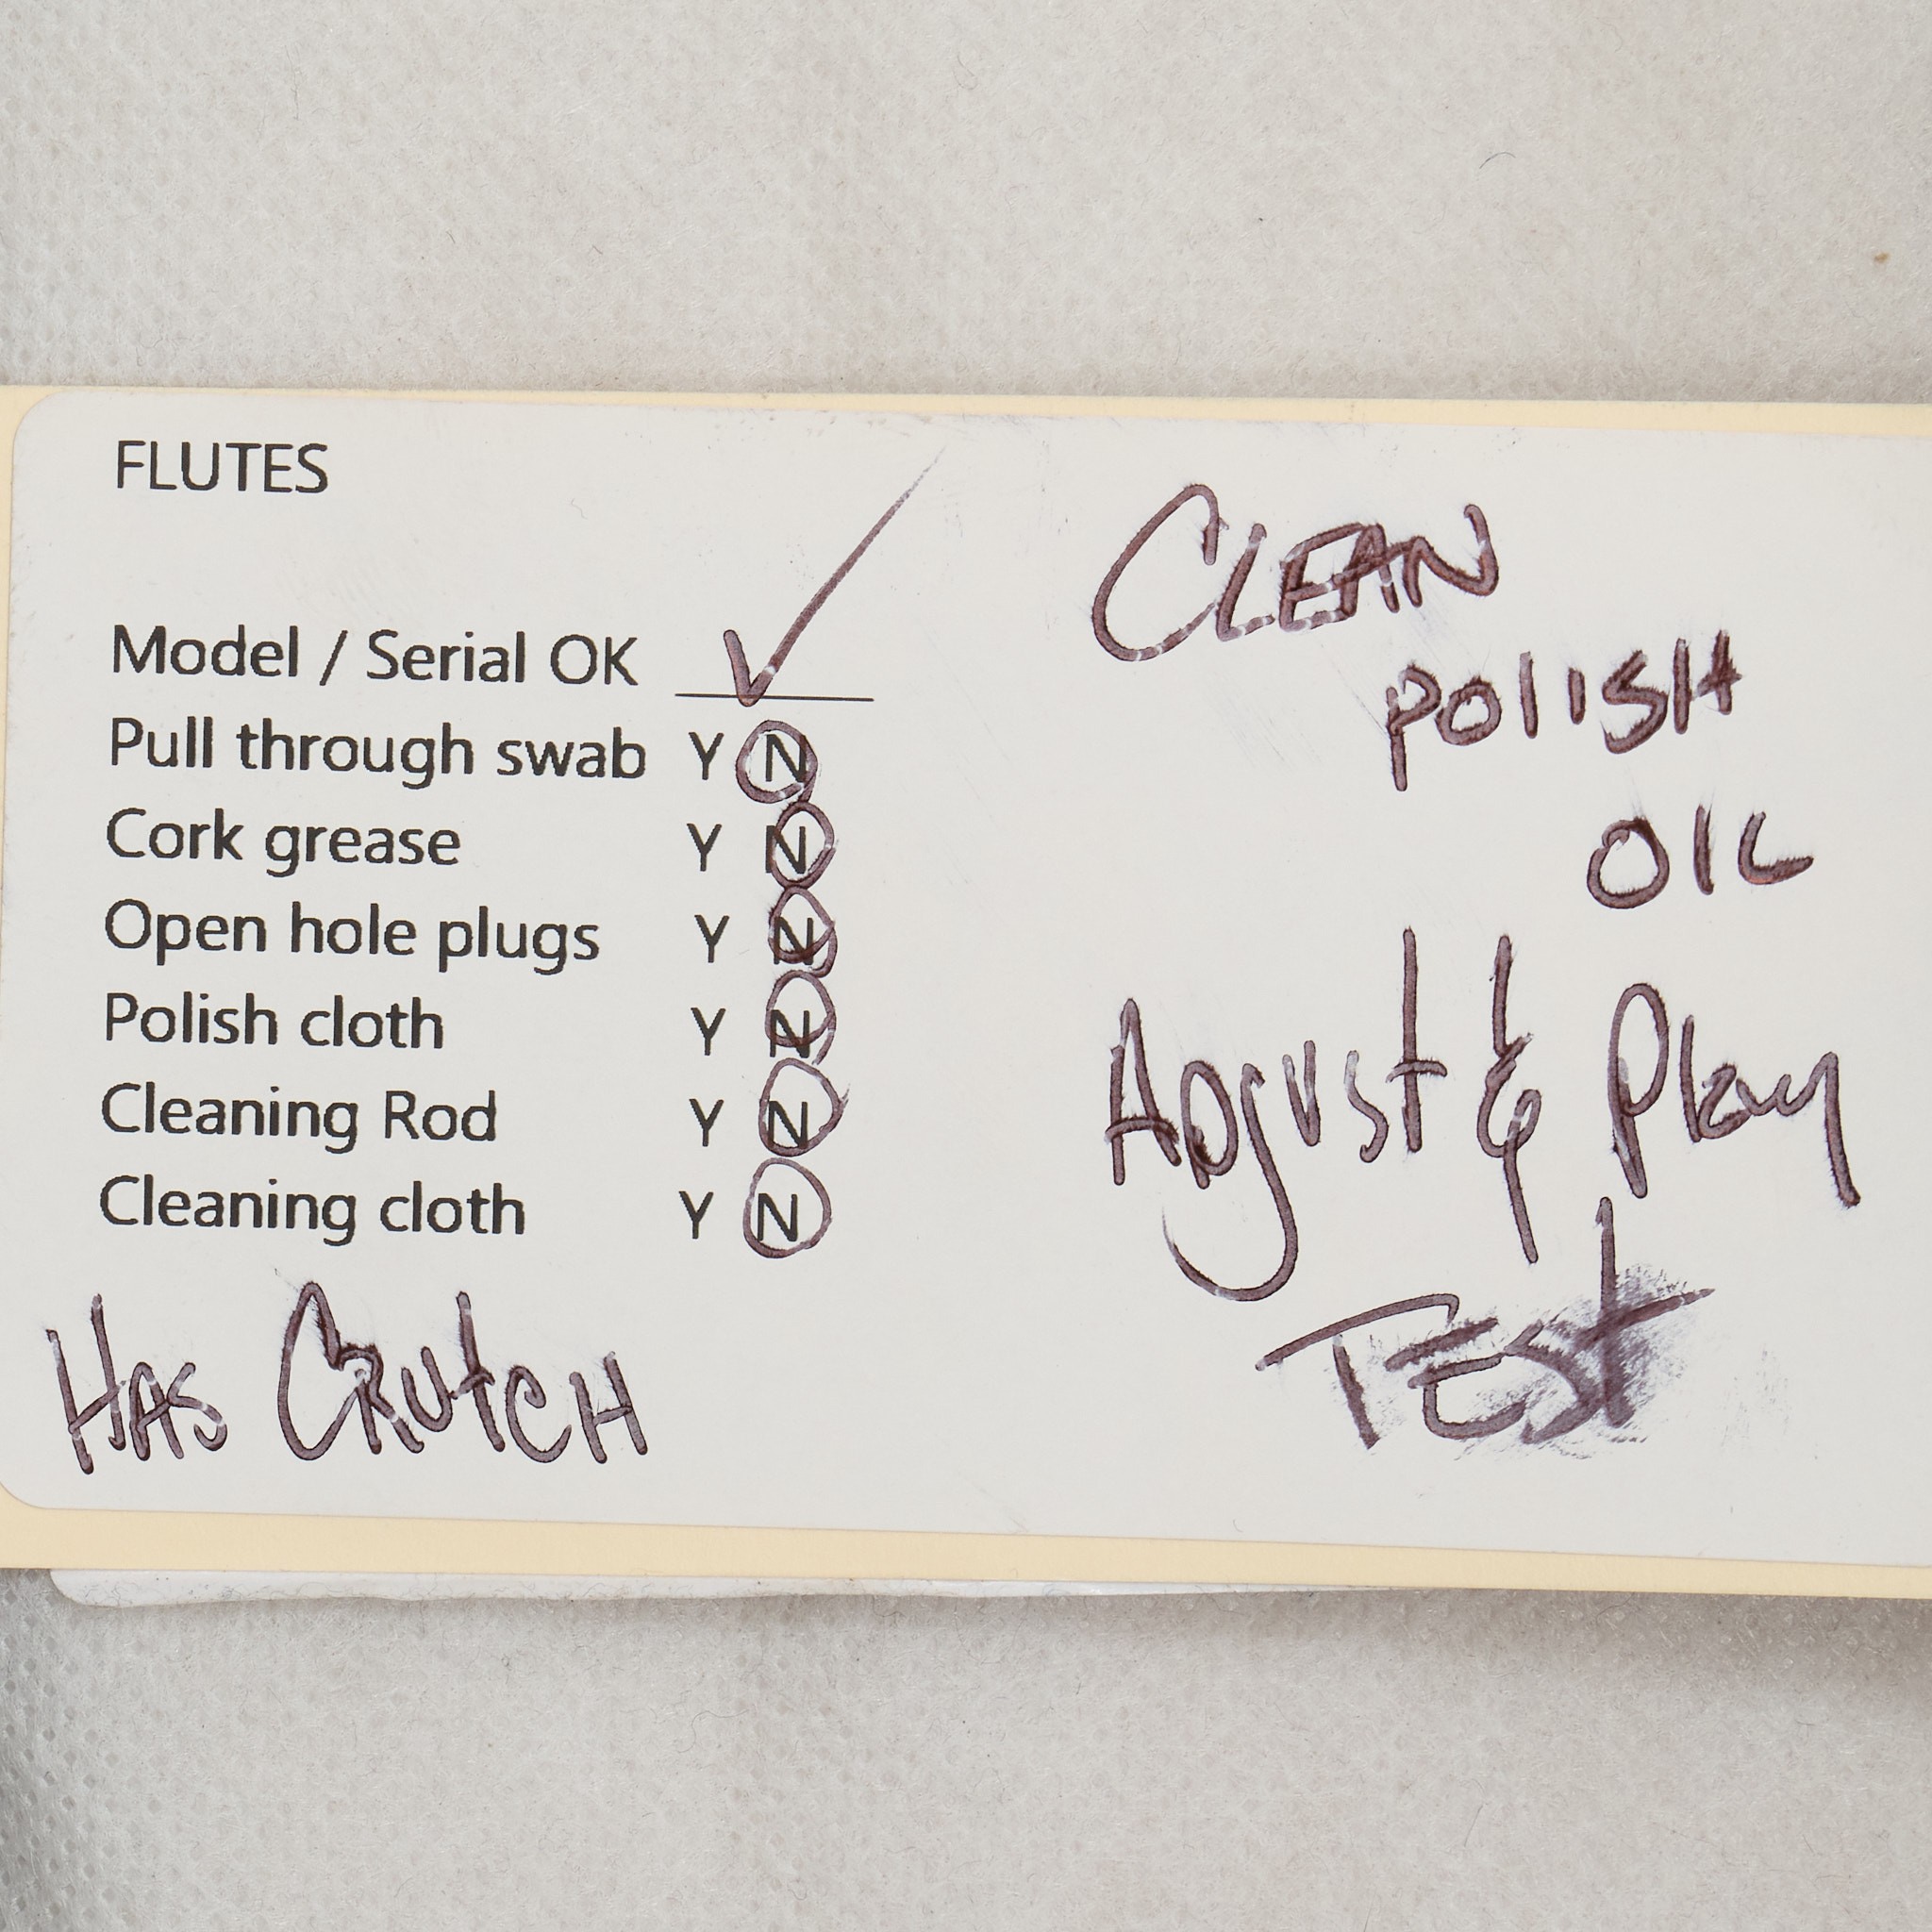 FLUTES
Model / Serial OK ✓
Pull through swab Y N
Cork grease Y N
Open hole plugs Y N
Polish cloth Y N
Cleaning Rod Y N
Cleaning cloth Y N
HAS CRUTCH
CLEAN
POLISH
OIL
ADJUST & Play
TEST